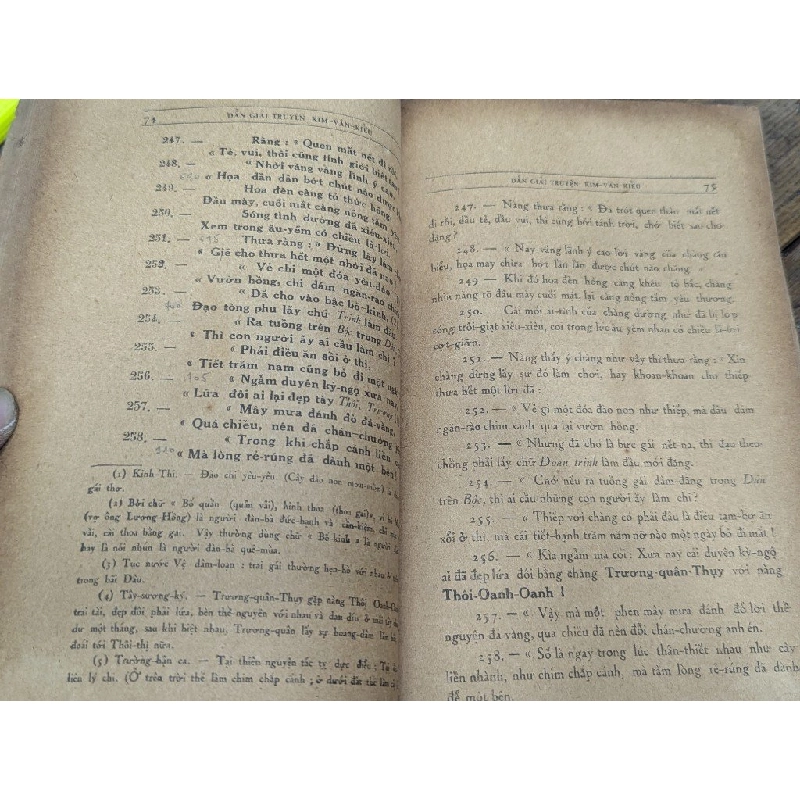 74 DẪN GIẢI TRUYỆN KIM-VÂN-KIỀU
247. — Rằng : « Quen mất nết đi rồi,
« Tẻ, vui, thôi cũng tính giời biết làm
248. — « Nhời vàng vâng lĩnh ý cao,
« Họa dần dần bớt chút nào được
249. — Hoa đèn càng tỏ thức hồng,
Đầu mày, cuối mắt càng nồng tấm
250. — Sóng tình dường đã xiêu-xiêu,
Xem trong âu-yếm có chiều lả-lơi.
251. — Thưa rằng : « Đừng lấy làm
« Giẽ cho thưa hết một nhời đã
252. — « Vẻ chi một đóa yêu-đào
« Vườn hồng, chi dám ngăn-rào
253. — « Đã cho vào bậc bố-kinh, (2)
Đạo tòng phu lấy chữ Trinh làm đầu
254. — « Ra tuồng trên Bộc trong
« Thì con người ấy ai cầu làm chi !
255. — « Phải điều ăn sổi ở thì.
« Tiết trăm năm cũng bỏ đi một
256. — « Ngẫm duyên kỳ-ngộ xưa
« Lứa đôi ai lại đẹp tày Thôi, Trương
257. — « Mây mưa đánh đổ đá-vàng,
« Quá chiều, nên đã chán-chường
258. — « Trong khi chắp cánh liền
« Mà lòng rẻ-rúng đã dành một bên !
(1) Kinh Thi. — Đào chi yêu-yêu (Cây đào
gái thơ.
(2) Bởi chữ « Bố quần (quần vải), kinh thoa
(vợ ông Lương-Hồng) là người đàn-bà đức-hạnh và
vải, cái thoa bằng gai. Vậy thường dùng chữ « Bố kinh » là người
bày là nói nhún là người đàn-bà quê-mùa.
(3) Tục nước Vệ dâm-loạn : trai gái thường họp-bò với nhau
trong bãi Dâu.
(4) Tây-sương-ký. — Trương-quân-Thụy gặp nàng Thôi
trai tài, đẹp đôi phải lứa, bèn thề-nguyền với nhau và
dư một tháng, sau khi biệt nhau, Trương-quân lấy sự hoang-dâm làm
đoái tới Thôi-thị nữa.
(5) Trường-hận ca. — Tại thiên nguyện tác tỵ dực điểu : Tại
liên lý chi. (Ở trên trời thề làm chim chắp cánh ; ở dưới đất
DẪN GIẢI TRUYỆN KIM-VÂN-KIỀU 75
247. — Nàng thưa rằng : « Đã trót quen thân mất nết
đi rồi, dầu tẻ, dầu vui, thì cũng bởi tánh trời, chớ biết sao cho
đặng ?
248. — « Nay vâng lãnh ý cao lời vàng của chàng
hiểu, họa may chừa bớt lần lần được chút nào chăng. »
249 — Khi đó hoa đèn hồng càng khêu tỏ bấc, chàng
nhìn nàng rõ đầu mày cuối mắt lại càng nồng tấm yêu thương.
250. — Cái mối ái-tình của chàng dường như đã bị lượn
sóng trôi-giạt xiêu-xiên, coi trong lúc âu yếm nhau có chiều lả-lơi
cợt-giỡn.
251. — Nàng thấy ý chàng như vậy thì thưa rằng : « Xin
chàng đừng lấy sự đó làm chơi, hãy khoan-khoan cho thiếp
thưa hết một lời đã :
252. — « Vẻ gì một đóc đào non như thiếp, mà dầu dám
ngăn-rào chim xanh qua lại vườn hồng.
253. — « Nhưng đã cho là bực gái nết na, thì đạo theo
chồng phải lấy chữ Đoan trinh làm đầu mới đặng.
254 — « Chớ nếu ra tuồng gái dâm-đãng trong Dâu
trên Bộc, thì ai cầu những con người ấy làm chi ?
255 — « Thiếp với chàng có phải đâu là điều tạm-bợ ăn
xổi ở thì, mà cái tiết-hạnh trăm năm nỡ nào một ngày bỏ đi mất !
256. — « Kìa ngẫm mà coi : Xưa nay cái duyên kỳ-ngộ
ai đã đẹp lứa đôi bằng chàng Trương-quân-Thụy với nàng
Thôi-Oanh-Oanh !
257. — « Vậy mà một phen mây mưa đánh đổ lời thề
nguyền đá vàng, quá chiều đã nên đỗi chán-chường anh én.
258. — « Số là ngay trong lúc thân-thiết nhau như cây
liền nhành, như chim chắp cánh, mà tấm lòng rẻ-rúng đã dành
để một bên.